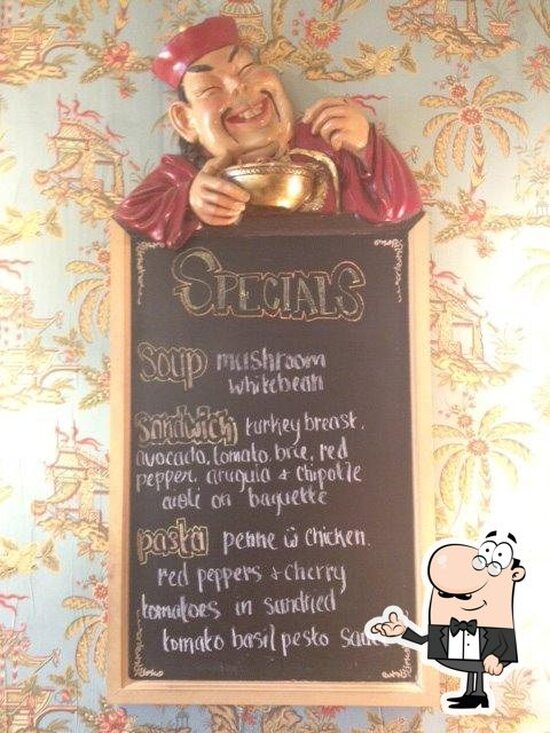 SPECIALS
soup mushroom
whitebean
sandwich turkey breast,
avocado, tomato, brie, red
pepper, arugula + chipotle
aioli on baguette
pasta penne w̄ chicken.
red peppers + cherry
tomatoes in sundried
tomato basil pesto sauce